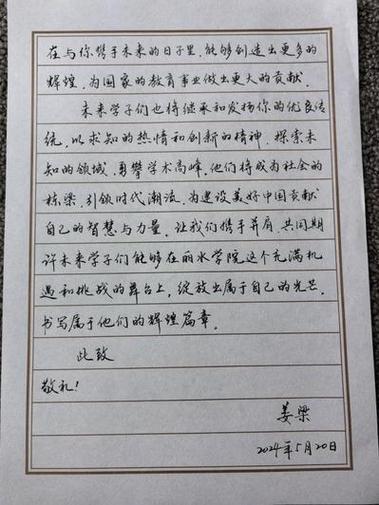 在与你携手未来的日子里，能够创造出更多的
辉煌，为国家的教育事业做出更大的贡献．
未来学子们也将继承和发扬你的优良传
统，以求知的热情和创新的精神，探索未
知的领域，勇攀学术高峰．他们将成为社会的
栋梁，引领时代潮流，为建设美好中国贡献
自己的智慧与力量．让我们携手并肩，共同期
许未来学子们能够在丽水学院这个充满机
遇和挑战的舞台上，绽放出属于自己的光芒．
书写属于他们的辉煌篇章．
此致
敬礼！
姜梁
2024年5月20日